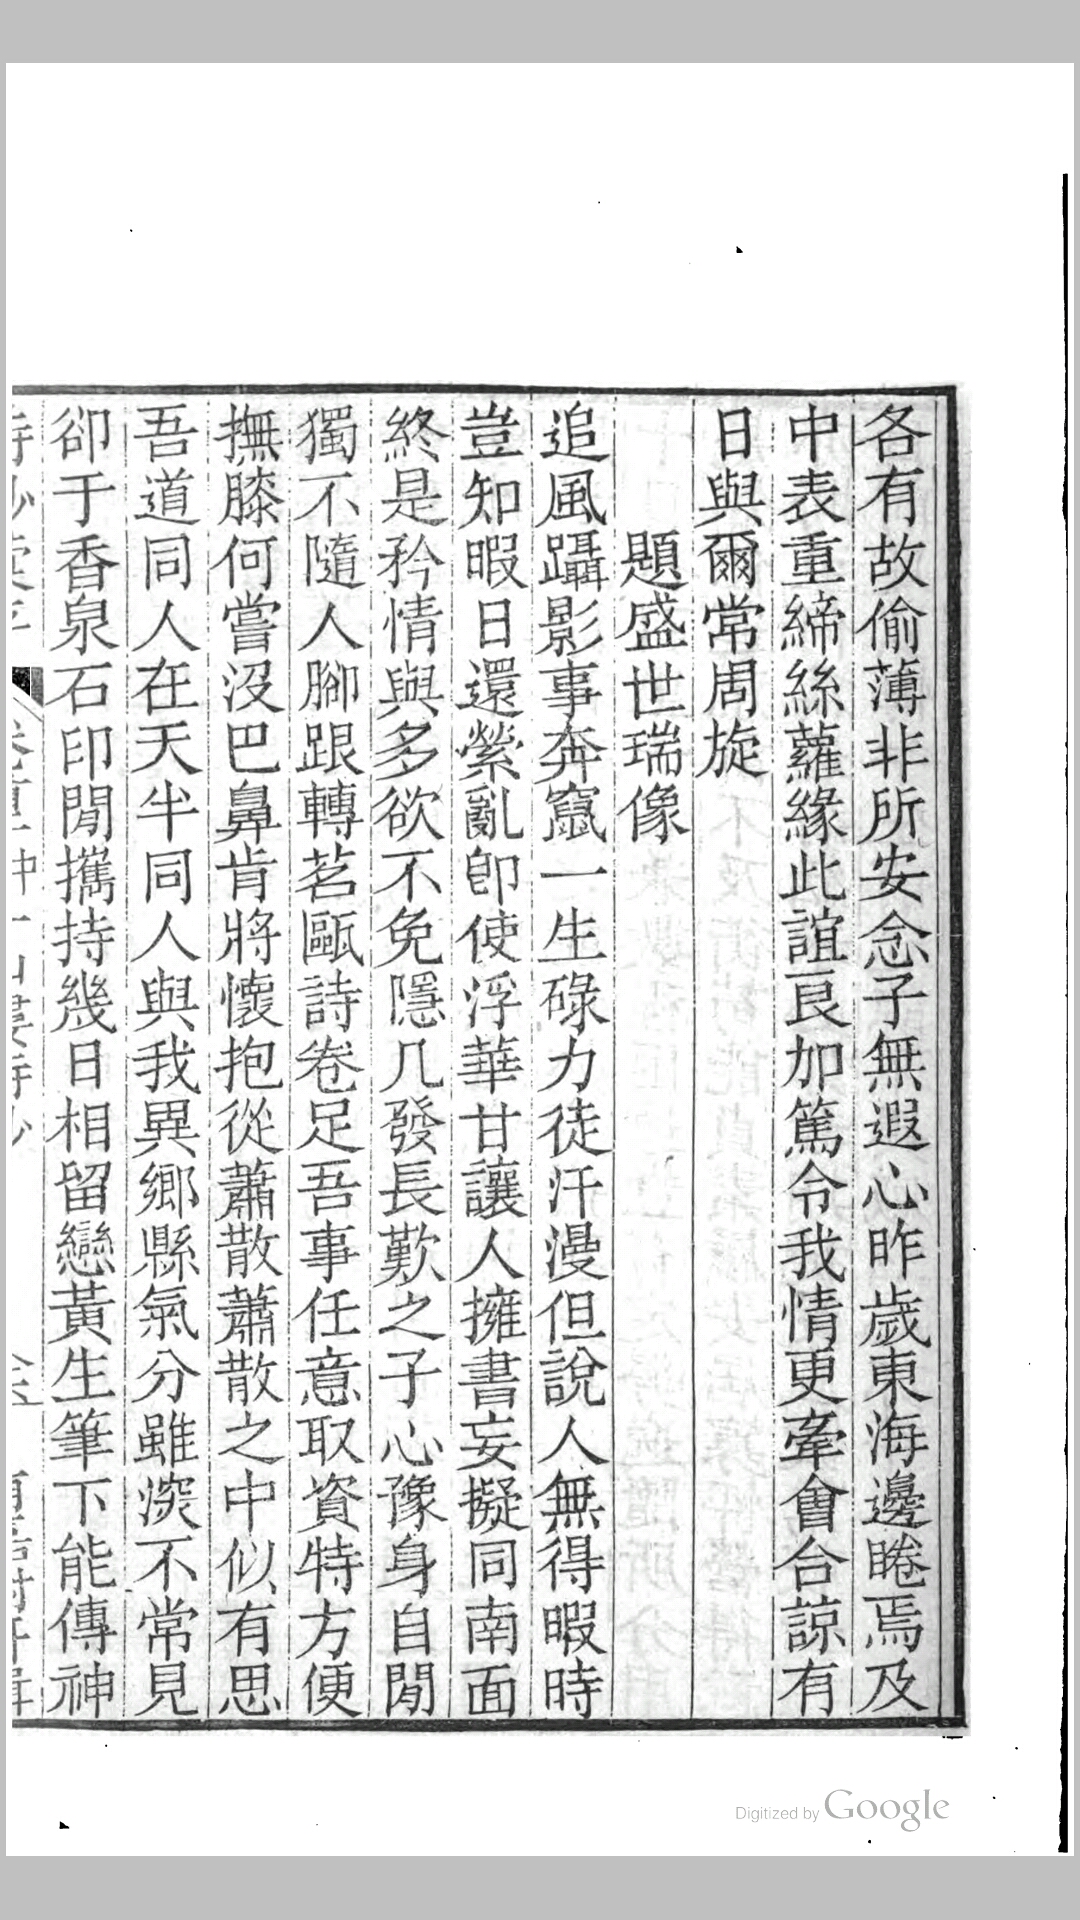 各有故偷薄非所安念子無遐心昨歲東海邊睠焉及
中表重締絲蘿緣此誼艮加篤令我情更牽會合諒有
日與爾常周旋
題盛世瑞像
追風躡影事奔竄一生碌力徒汗漫但說人無得暇時
豈知暇日還縈亂卽使浮華甘讓人擁書妄擬同南面
終是矜情與多欲不免隱几發長歎之子心豫身自閒
獨不隨人腳跟轉茗甌詩卷足吾事任意取資特方便
撫膝何嘗沒巴鼻肯將懷抱從蕭散蕭散之中似有思
吾道同人在天半同人與我異鄉縣氣分雖深不常見
卻于香泉石印閒攜持幾日相留戀黃生筆下能傳神
Digitized by Google